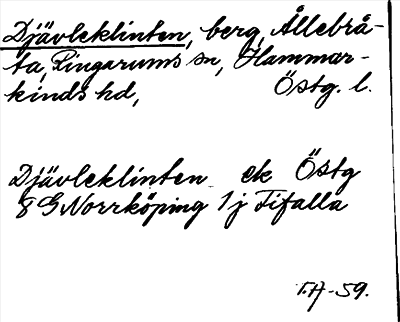 Djävleklinten, berg, Ållebrå-
ta, Ringarums sn, Hammar-
kinds hd, Östg. l.
Djävleklinten ek Östg
8 G Norrköping 1 j Fifalla
T.H-59.